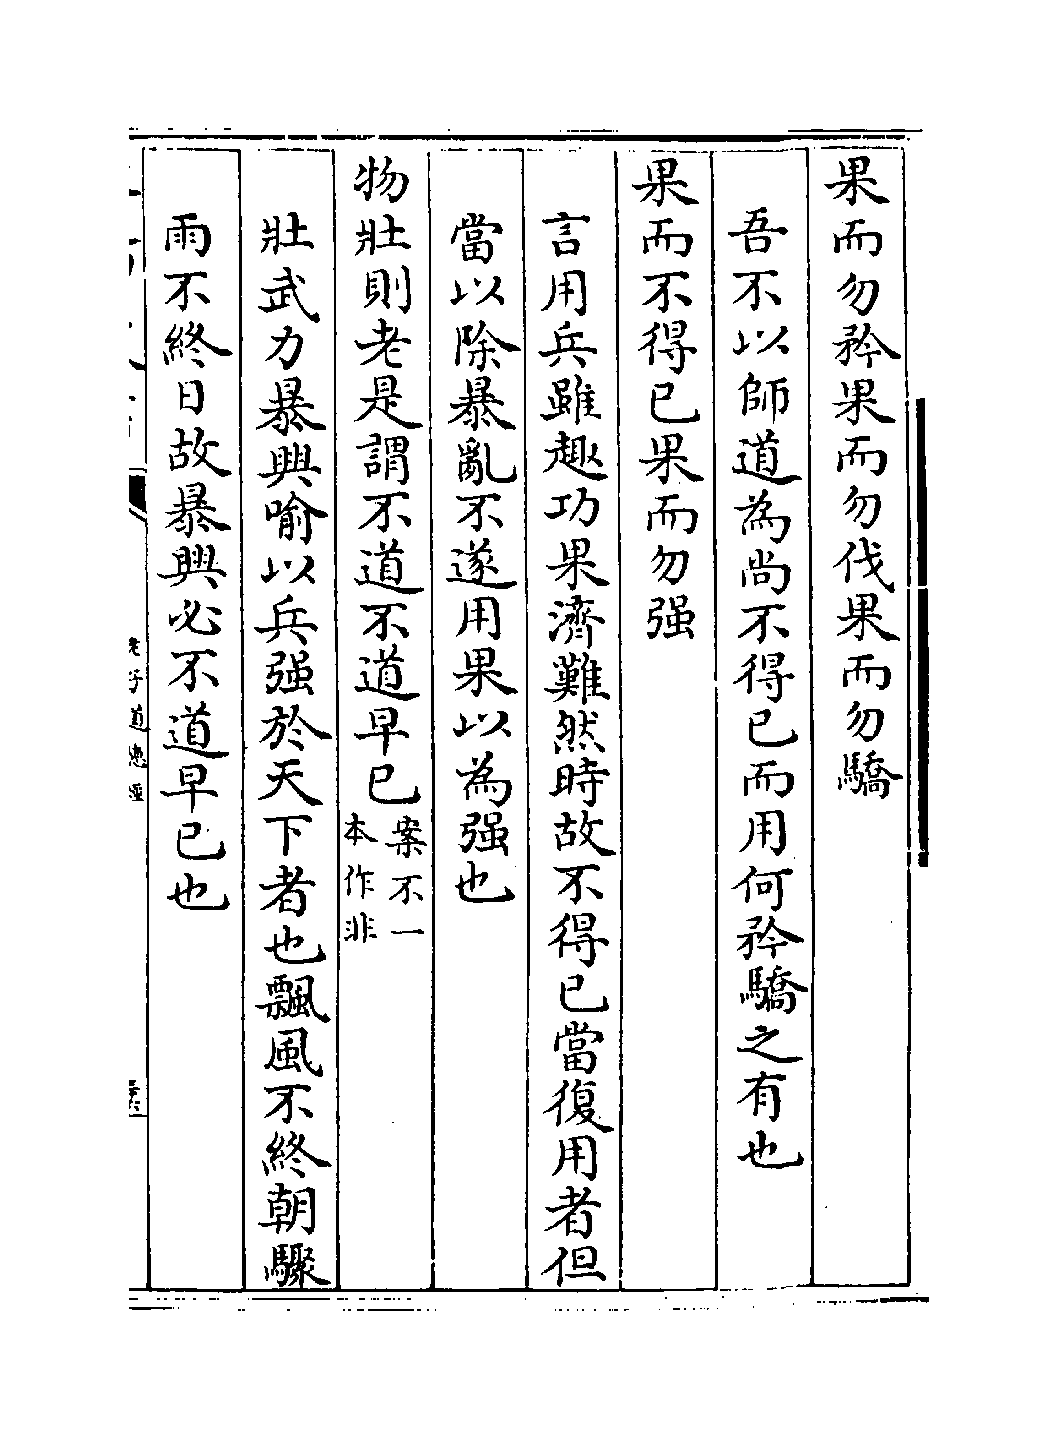 果而勿矜果而勿伐果而勿驕
吾不以師道為尚不得已而用何矜驕之有也
果而不得已果而勿强
言用兵雖趣功果濟難然時故不得已當復用者但
當以除暴亂不遂用果以為强也
物壯則老是謂不道不道早已案不一
本作非
壯武力暴興喻以兵强於天下者也飄風不終朝驟
雨不終日故暴興必不道早已也
老子道德經